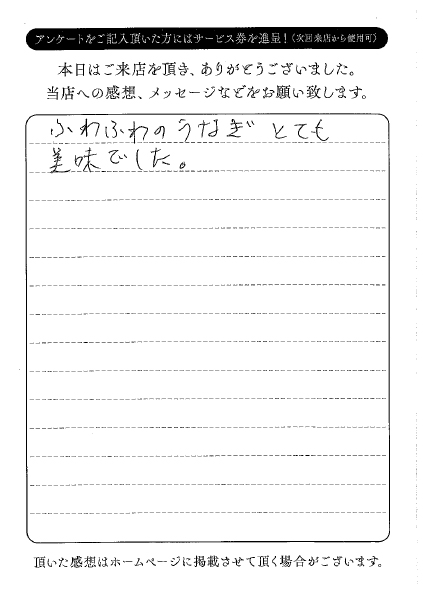 アンケートをご記入頂いた方にはサービス券を進呈!(次回来店から使用可)
本日はご来店を頂き、ありがとうございました。
当店への感想、メッセージなどをお願い致します。
ふわふわのうなぎ とても
美味でした。
頂いた感想はホームページに掲載させて頂く場合がございます。